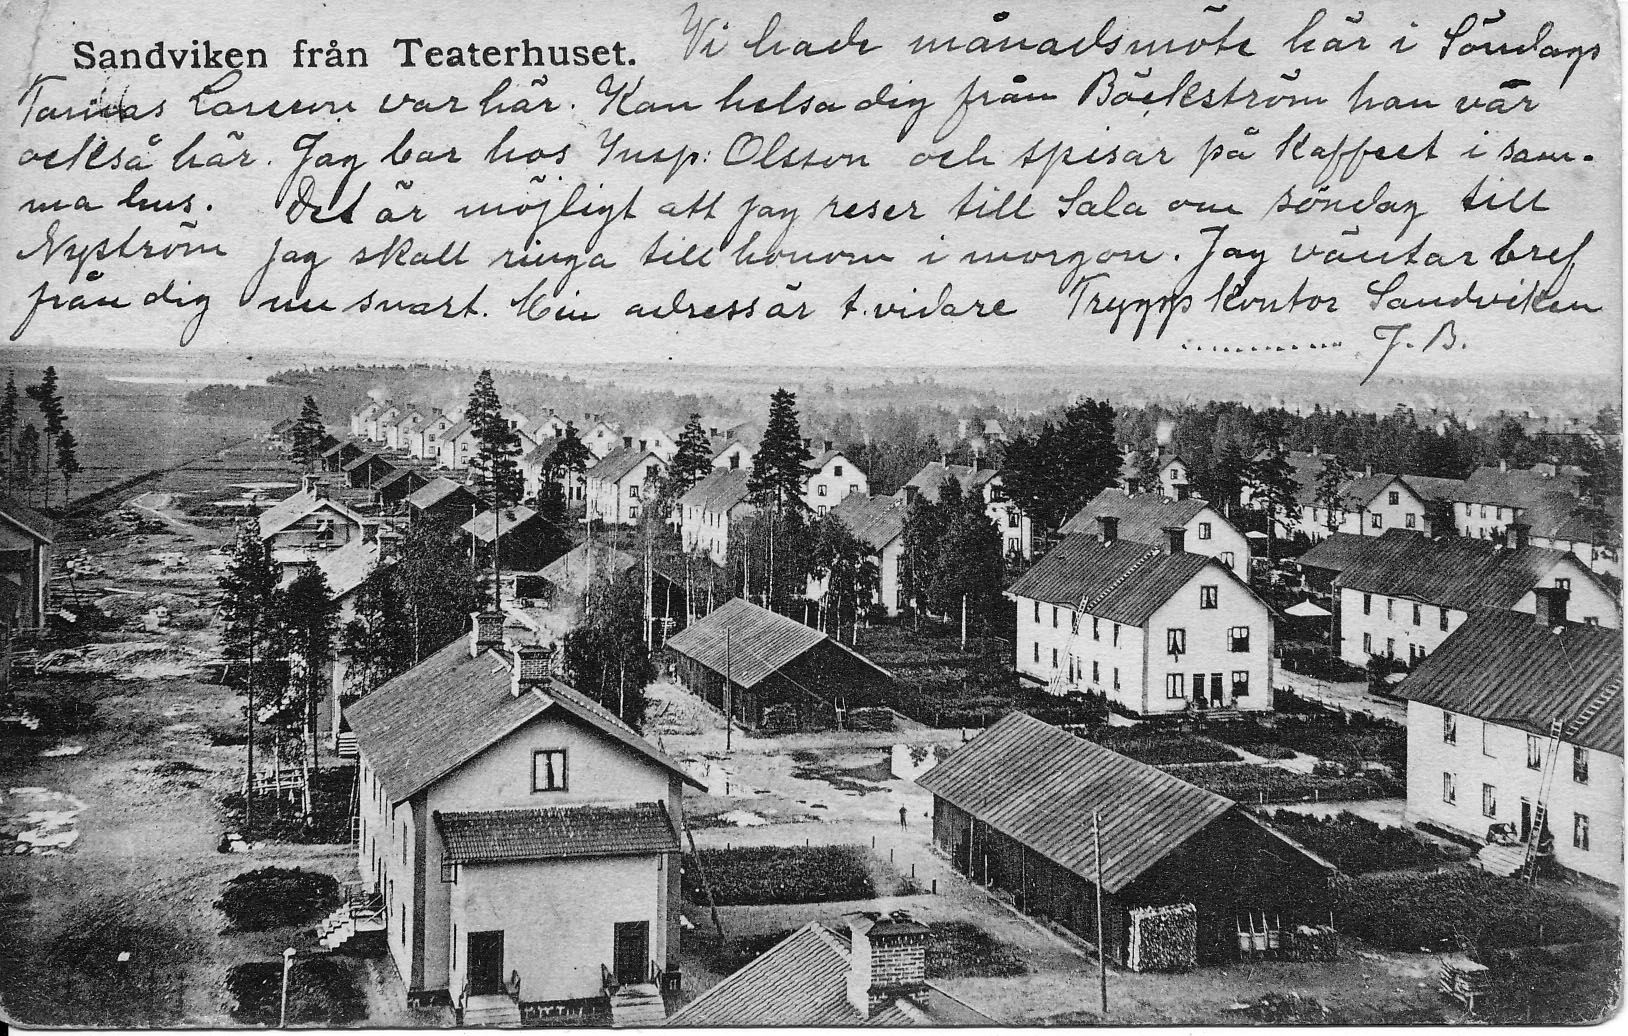 Sandviken från Teaterhuset.
Vi hade månadsmöte här i Söndags
Larsson var här. Kan helsa dig från Bäckström han var
också här. Jag bor hos Insp: Olsson och spisar på Kaffeet i sam-
ma hus. Det är möjligt att jag reser till Sala om söndag till
Nyström jag skall ringa till honom i morgon. Jag väntar bref
från dig nu snart. Min adress är t.vidare Tryggs Kontor Sandviken
J. B.